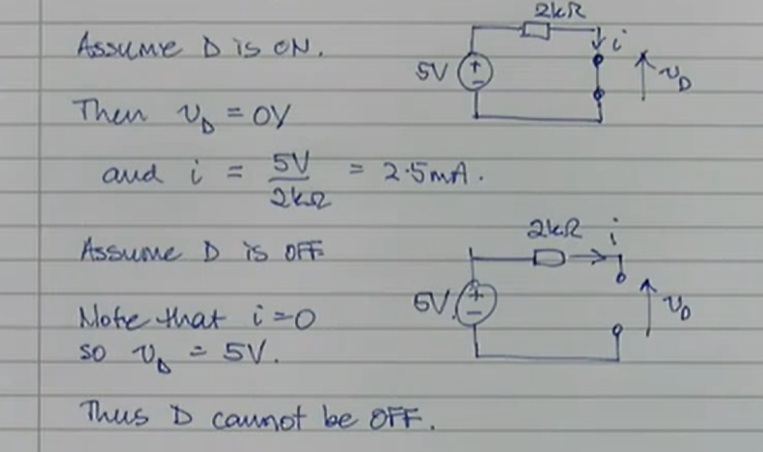 2kΩ
Assume D is ON.
i
5V
+
-
v_D
Then v_D = 0V
and i = 5V / 2kΩ = 2.5mA.
2kΩ i
Assume D is OFF
5V
+
-
v_D
Note that i=0
so v_D = 5V.
Thus D cannot be OFF.